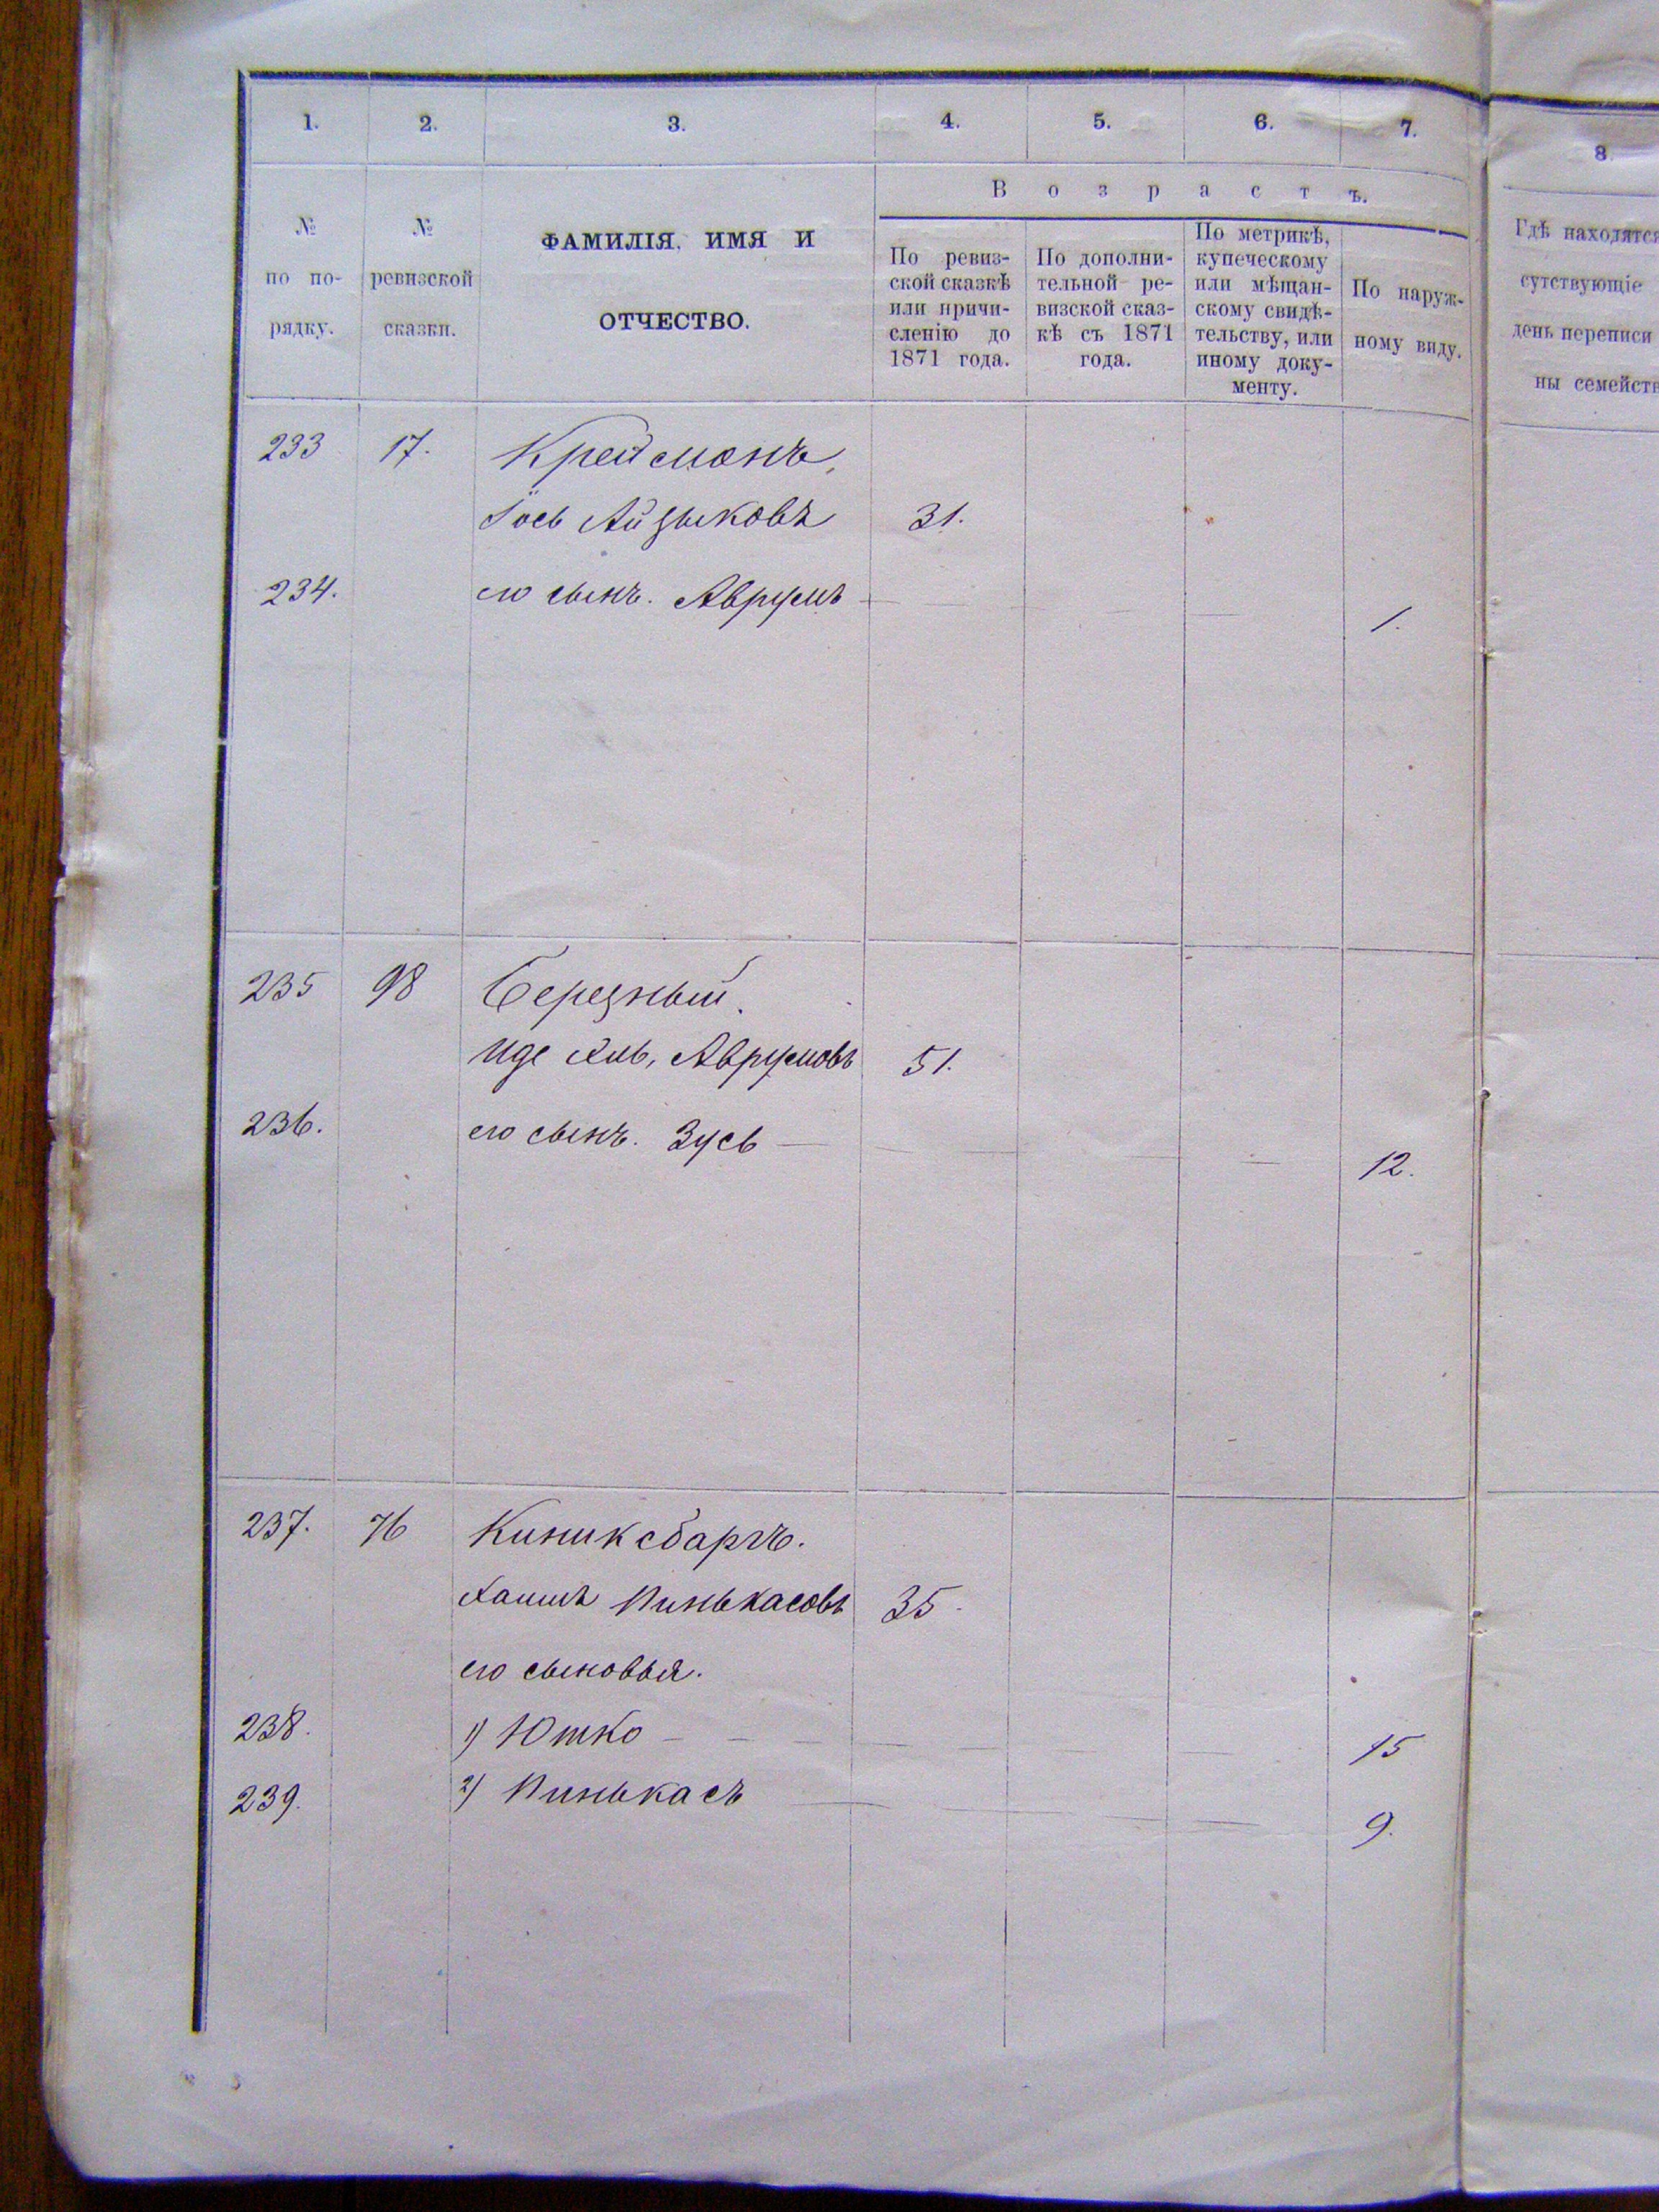 1. 2. 3. 4. 5. 6. 7. 8
№ по порядку.
№ ревизской сказки.
ФАМИЛІЯ, ИМЯ И ОТЧЕСТВО.
Возрастъ.
По ревиз-
ской сказкѣ
или причи-
сленію до
1871 года.
По дополни-
тельной ре-
визской сказ-
кѣ съ 1871
года.
По метрикѣ,
купеческому
или мѣщан-
скому свидѣ-
тельству, или
иному доку-
менту.
По наруж-
ному виду.
Гдѣ находятся
сутствующіе
день переписи
ны семейств
233 17. Крейсманъ,
Іось Айзыковъ 31.
234. его сынъ. Аврумъ 1.
235 98 Березный.
Аврумовъ 51.
236. его сынъ. Зусь 12.
237. 76 Киниксбаргъ.
Хаимъ Пинькасовъ 35.
его сыновья.
238. 1) Ютко 15
239. 2) Пинькасъ 9.